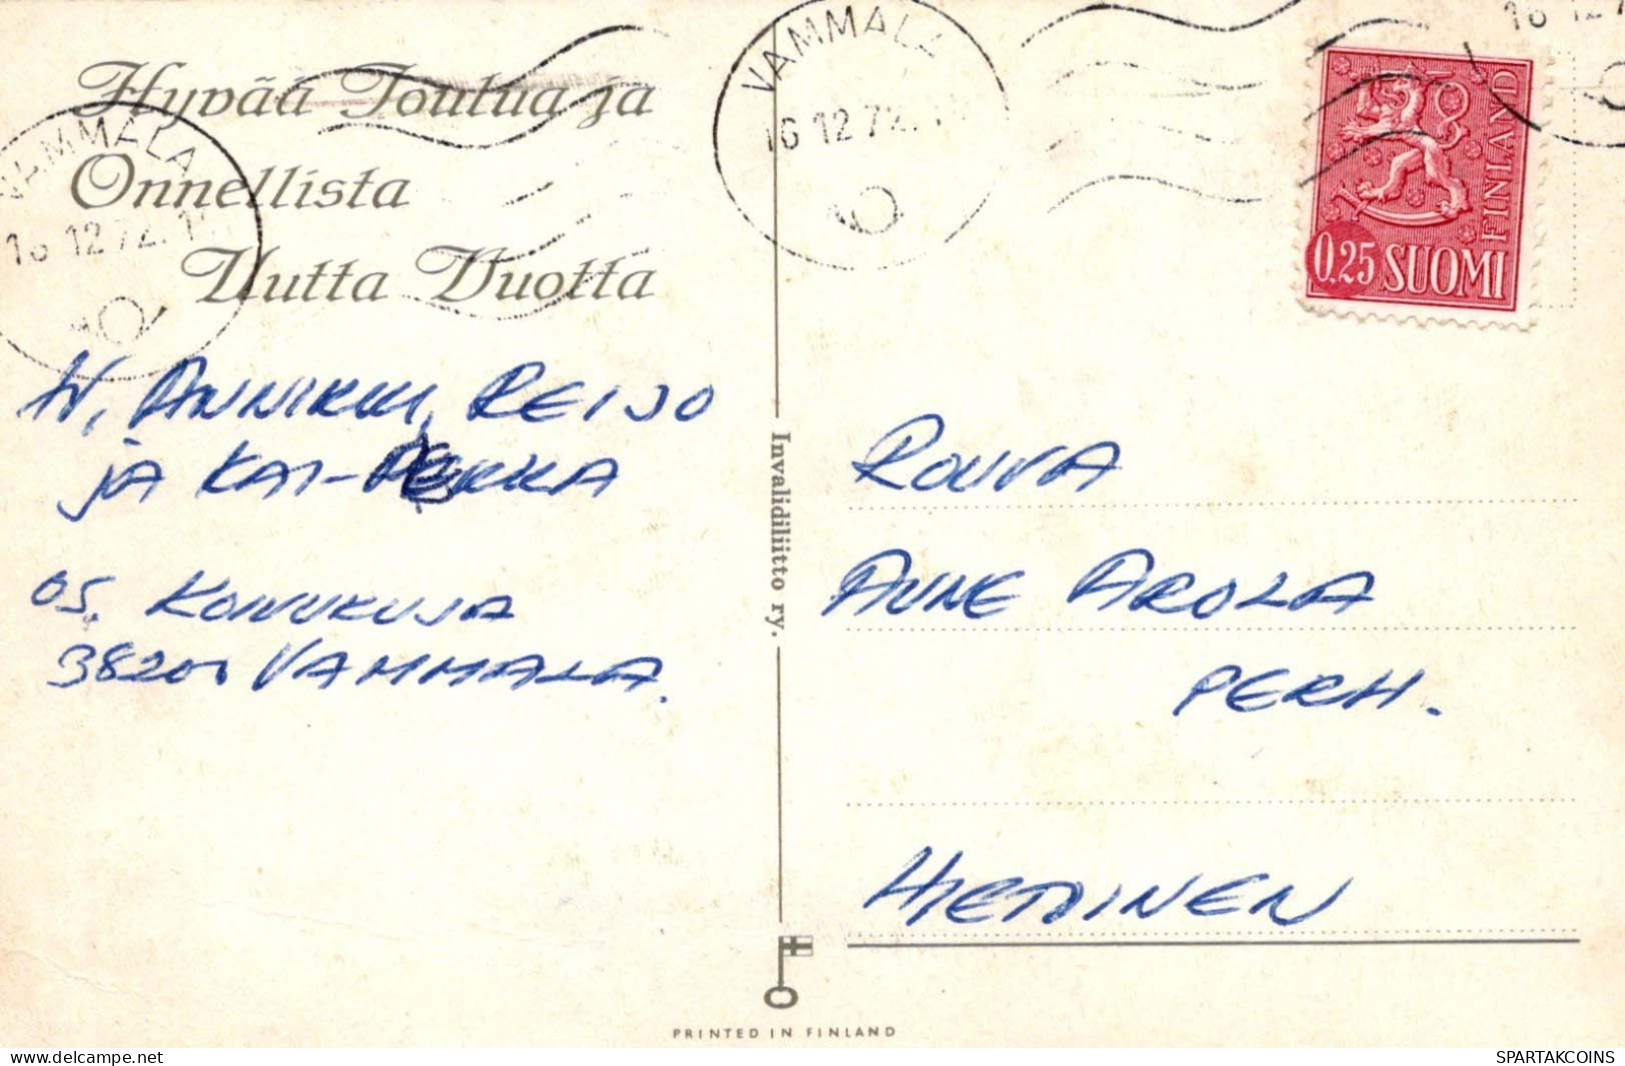 Hyvää Joulua ja
Onnellista
Uutta Vuotta
VAMMALA
16 12 72
VAMMALA
16 12 72
16 12 7
0,25 SUOMI
FINLAND
W, ANNIKKI, REIJO
ja KAI-PEKKA
OS. KOIVUKUJA
38200 VAMMALA.
Invalidiliitto ry.
ROUVA
AUNE AROLA
PERH.
HIETOINEN
PRINTED IN FINLAND
www.delcampe.net
SPARTAKCOINS